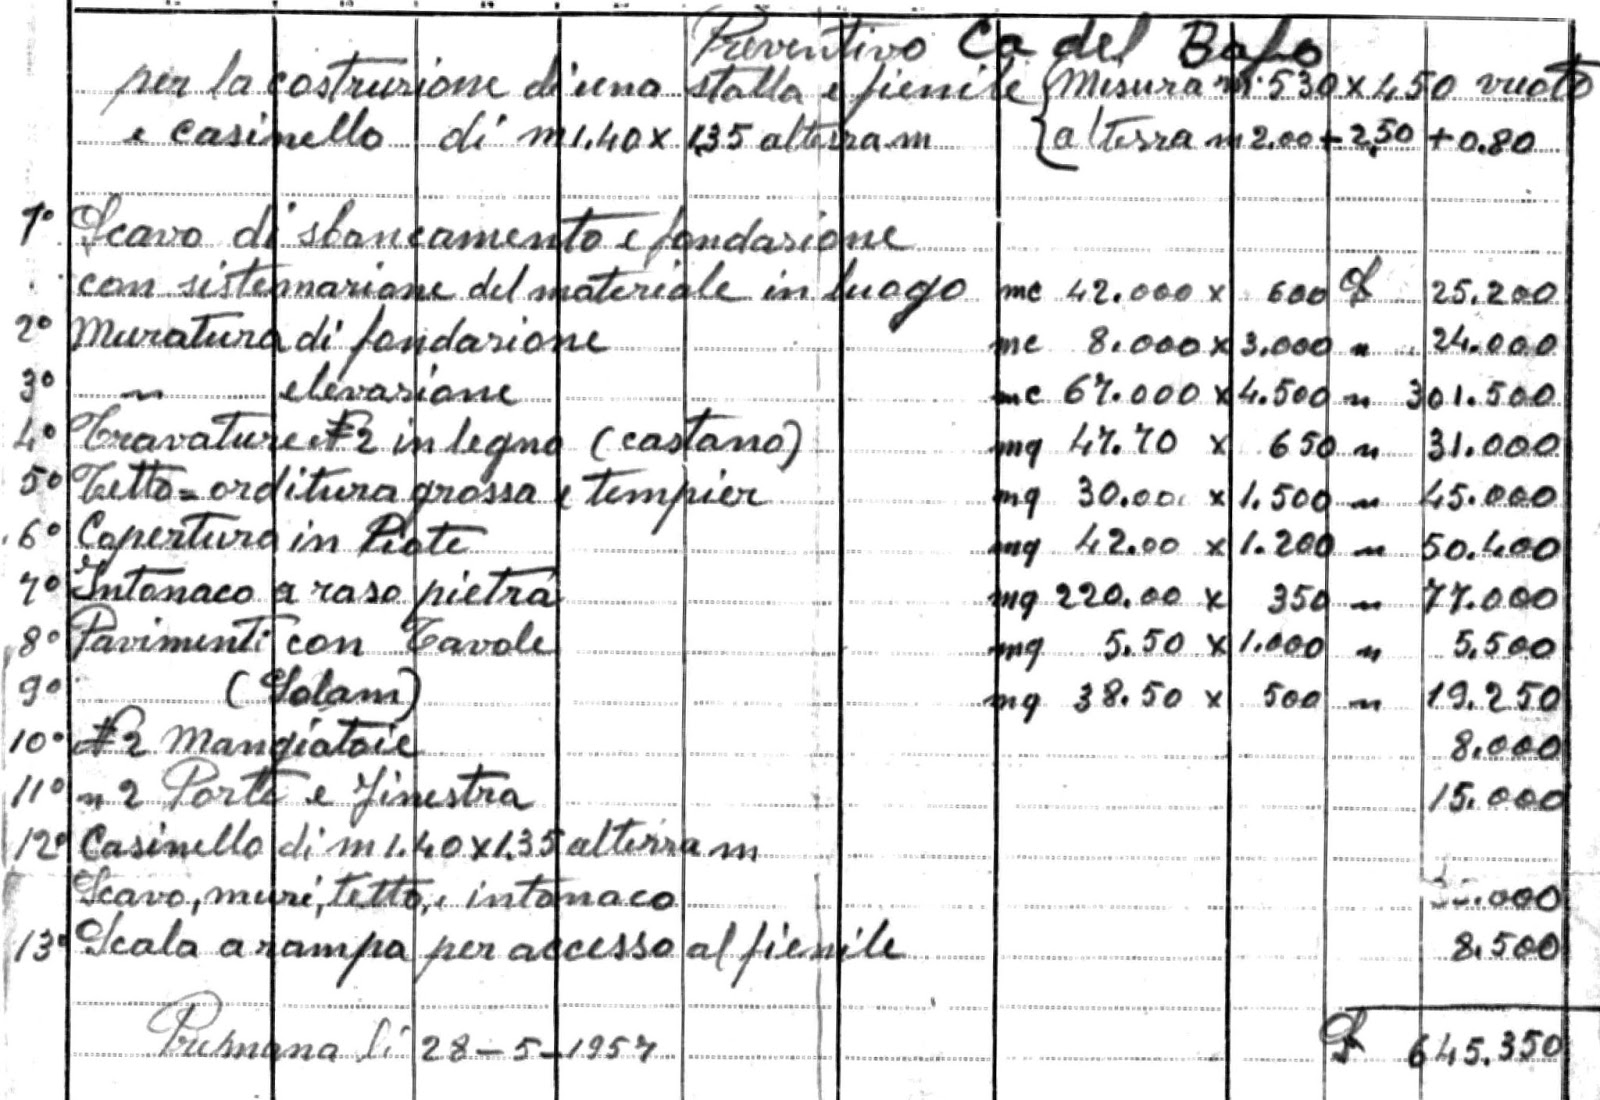 Preventivo Ca del Bafo
per la costruzione di una stalla e fienile { Misura m. 530 x 450 vuoto
e casinello di m 1.40 x 1,35 alterram { alterra m 2.00 + 2,50 + 0.80
1° Scavo di sbancamento e fondazione
con sistemazione del materiale in luogo mc 42.000 x 600 £ 25.200
2° Muratura di fondazione mc 8.000 x 3.000 " 24.000
3° " elevazione mc 67.000 x 4.500 " 301.500
4° Travature N 2 in legno (castano) mq 47.70 x 650 " 31.000
5° Tetto = orditura grossa e tempier mq 30.00 x 1.500 " 45.000
6° Copertura in Piote mq 42.00 x 1.200 " 50.400
7° Intonaco a raso pietra mq 220.00 x 350 " 77.000
8° Pavimenti con Tavole mq 5.50 x 1.000 " 5.500
9° (Solam) mq 38.50 x 500 " 19.250
10° N 2 Mangiatoie 8.000
11° n 2 Porte e finestra 15.000
12° Casinello di m 1.40 x 1.35 alterra m
Scavo, muri, tetto, e intonaco .000
13° Scala a rampa per accesso al fienile 8.500
Premana li 28-5-1957 £ 645.350